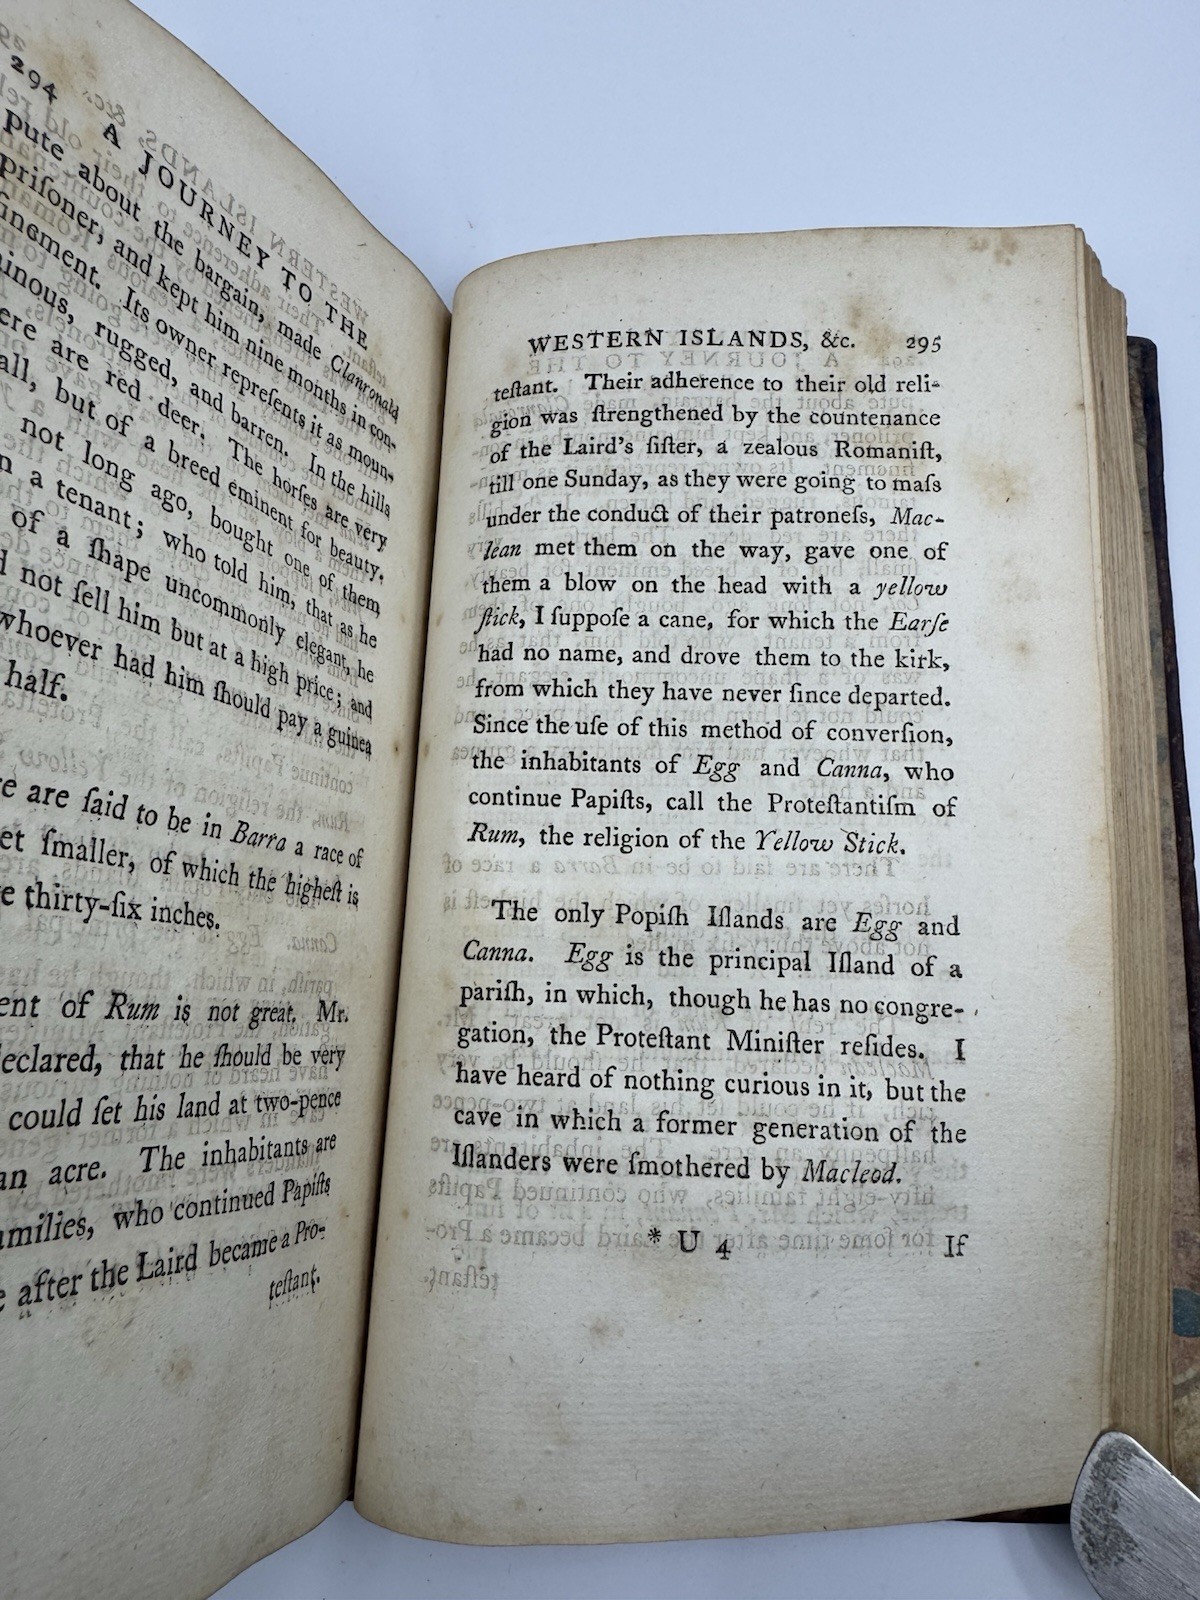 294 A JOURNEY TO THE
pute about the bargain, made Clanronald
priſoner, and kept him nine months in con-
finement. Its owner repreſents it as moun-
ainous, rugged, and barren. In the hills
ere are red deer. The horſes are very
all, but of a breed eminent for beauty.
not long ago, bought one of them
a tenant; who told him, that as he
of a ſhape uncommonly elegant, he
not ſell him but at a high price; and
whoever had him ſhould pay a guinea
half.
re are ſaid to be in Barra a race of
et ſmaller, of which the higheſt is
e thirty-ſix inches.
ent of Rum is not great. Mr.
declared, that he ſhould be very
could ſet his land at two-pence
an acre. The inhabitants are
amilies, who continued Papiſts
e after the Laird became a Pro-
teſtant.
WESTERN ISLANDS, &c. 295
teſtant. Their adherence to their old reli-
gion was ſtrengthened by the countenance
of the Laird's ſiſter, a zealous Romaniſt,
till one Sunday, as they were going to maſs
under the conduct of their patroneſs, Mac-
lean met them on the way, gave one of
them a blow on the head with a yellow
ſtick, I ſuppoſe a cane, for which the Earſe
had no name, and drove them to the kirk,
from which they have never ſince departed.
Since the uſe of this method of converſion,
the inhabitants of Egg and Canna, who
continue Papiſts, call the Proteſtantiſm of
Rum, the religion of the Yellow Stick.
The only Popiſh Iſlands are Egg and
Canna. Egg is the principal Iſland of a
pariſh, in which, though he has no congre-
gation, the Proteſtant Miniſter reſides. I
have heard of nothing curious in it, but the
cave in which a former generation of the
Iſlanders were ſmothered by Macleod.
* U 4 If